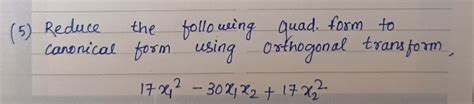 (5) Reduce the following quad. form to
canonical form using orthogonal transform,
17x₁² - 30x₁x₂ + 17x₂²